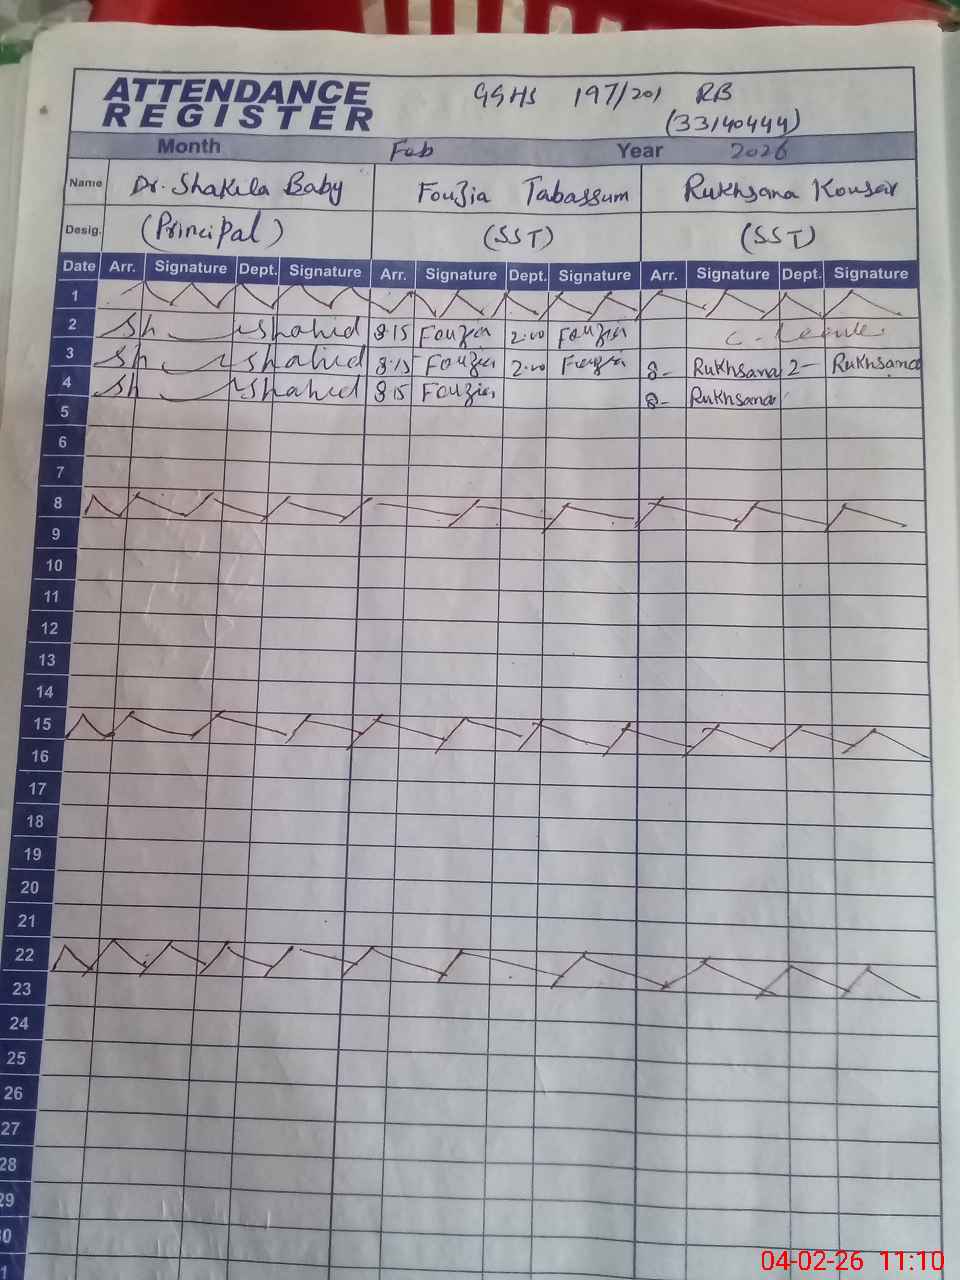 ATTENDANCE REGISTER
GGHS 197/201 RB
(33140444)
Month Feb Year 2026
Name Dr. Shakila Baby Fouzia Tabassum Rukhsana Kousar
Desig. (Principal) (SST) (SST)
Date Arr. Signature Dept. Signature Arr. Signature Dept. Signature Arr. Signature Dept. Signature
1
2 Sh shahid 8:15 Fouzia 2:00 Fouzia C. Leave
3 Sh shahid 8:15 Fouzia 2:00 Fouzia 8- Rukhsana 2- Rukhsana
4 Sh shahid 8:15 Fouzia 8- Rukhsana
5
6
7
8
9
10
11
12
13
14
15
16
17
18
19
20
21
22
23
24
25
26
27
28
29
30
04-02-26 11:10